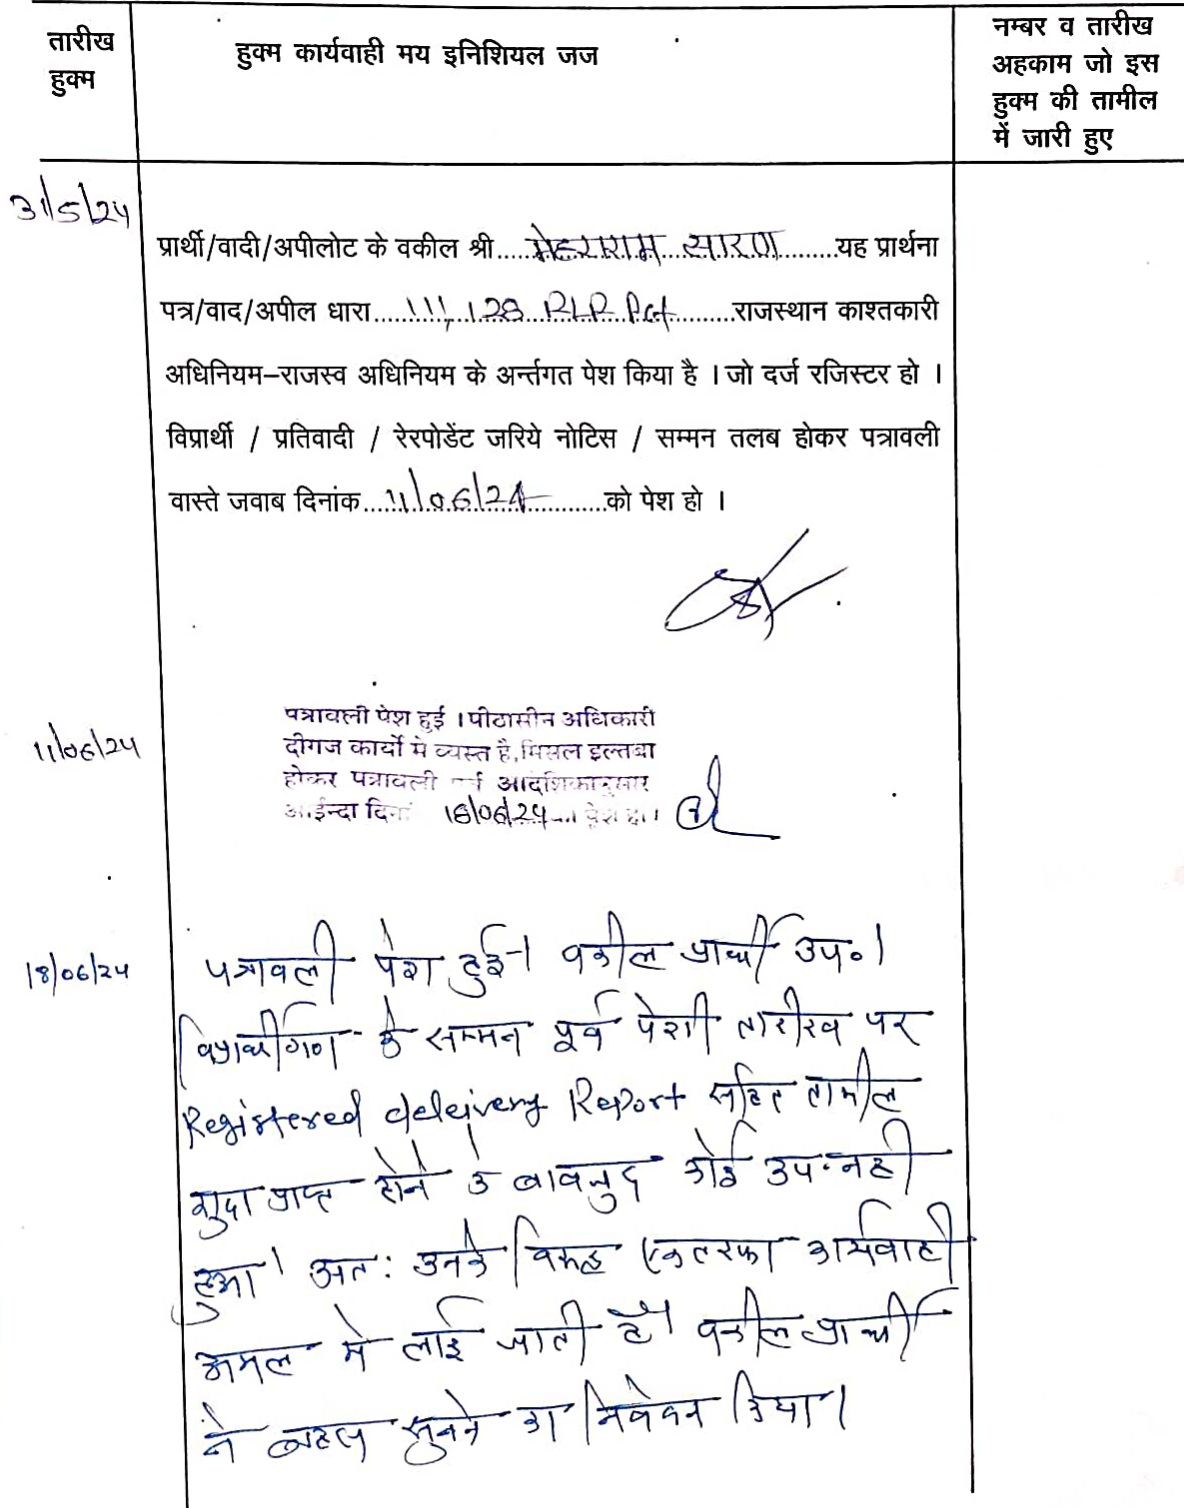 तारीख
हुक्म
हुक्म कार्यवाही मय इनिशियल जज
नम्बर व तारीख
अहकाम जो इस
हुक्म की तामील
में जारी हुए
31/5/24
प्रार्थी/वादी/अपीलोट के वकील श्री.....मेहराराम सारण.........यह प्रार्थना
पत्र/वाद/अपील धारा....111, 128 RLR Act........राजस्थान काश्तकारी
अधिनियम–राजस्व अधिनियम के अर्न्तगत पेश किया है । जो दर्ज रजिस्टर हो ।
विप्रार्थी / प्रतिवादी / रेरपोडेंट जरिये नोटिस / सम्मन तलब होकर पत्रावली
वास्ते जवाब दिनांक...11/06/24............को पेश हो ।
11/06/24
पत्रावली पेश हुई । पीठासीन अधिकारी
दीगज कार्यो मे व्यस्त है, मिसल इल्तबा
होकर पत्रावली आदेशिकानुसार
आईन्दा दिनां 18/06/24 पेश हो।
18/06/24
पत्रावली पेश हुई। वकील प्रार्थी उप०।
विप्रार्थीगण के सम्मन पूर्व पेशी तारीख पर
Registered deleivery Report सहित तामील
शुदा प्राप्त होने के बावजुद कोई उप. नही
हुआ। अत: उनके विरूद्ध एकतरफा कार्यवाही
अमल मे लाई जाती है। वकील प्रार्थी
ने बहस सुनने का निवेदन किया।